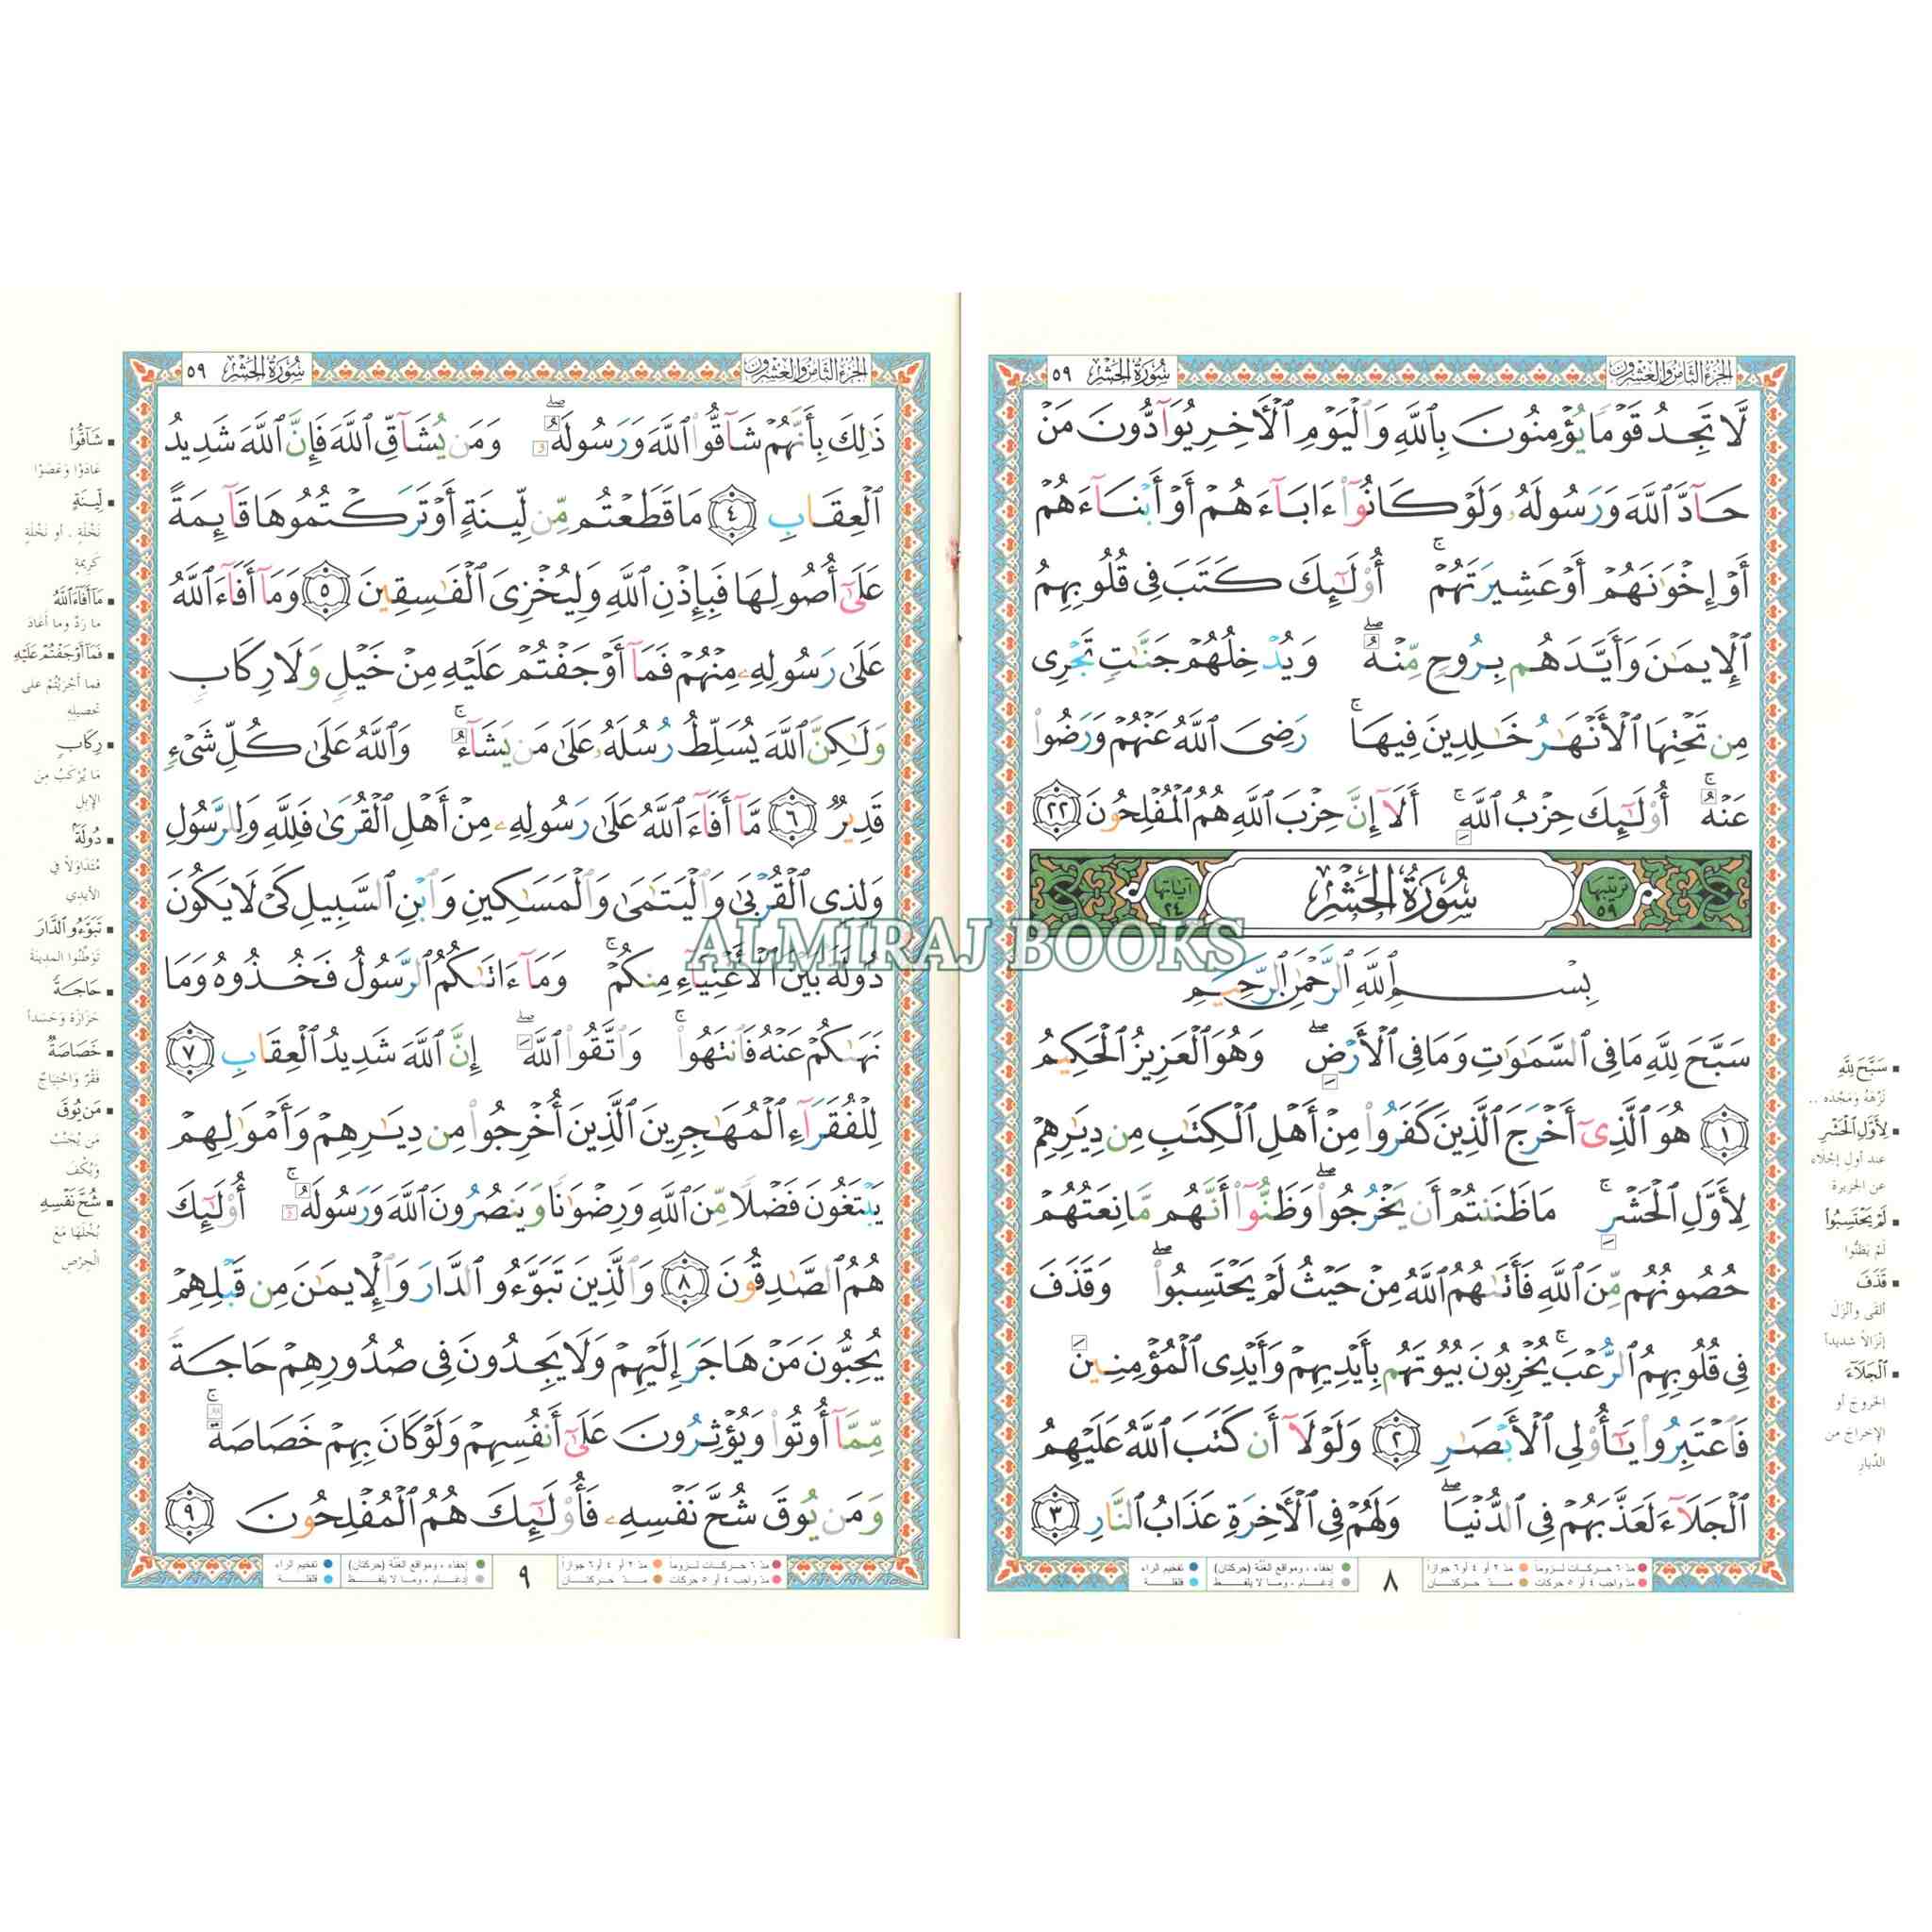 سُورَةُ الْحَشْرِ ٥٩
الجُزْءُ الثَّامِنُ وَالْعِشْرُونَ
لَّا تَجِدُ قَوْمًا يُؤْمِنُونَ بِٱللَّهِ وَٱلْيَوْمِ ٱلْأَخِرِ يُوَآدُّونَ مَنْ
حَآدَّ ٱللَّهَ وَرَسُولَهُۥ وَلَوْ كَانُوٓا۟ ءَابَآءَهُمْ أَوْ أَبْنَآءَهُمْ
أَوْ إِخْوَٰنَهُمْ أَوْ عَشِيرَتَهُمْ ۚ أُو۟لَٰٓئِكَ كَتَبَ فِى قُلُوبِهِمُ
ٱلْإِيمَٰنَ وَأَيَّدَهُم بِرُوحٍ مِّنْهُ ۖ وَيُدْخِلُهُمْ جَنَّٰتٍ تَجْرِى
مِن تَحْتِهَا ٱلْأَنْهَٰرُ خَٰلِدِينَ فِيهَا ۚ رَضِىَ ٱللَّهُ عَنْهُمْ وَرَضُوا۟
عَنْهُ ۚ أُو۟لَٰٓئِكَ حِزْبُ ٱللَّهِ ۚ أَلَآ إِنَّ حِزْبَ ٱللَّهِ هُمُ ٱلْمُفْلِحُونَ ٢٢
ترتيبها ٥٩ سُورَةُ الْحَشْرِ آياتها ٢٤
بِسْمِ ٱللَّهِ ٱلرَّحْمَٰنِ ٱلرَّحِيمِ
سَبَّحَ لِلَّهِ مَا فِى ٱلسَّمَٰوَٰتِ وَمَا فِى ٱلْأَرْضِ ۖ وَهُوَ ٱلْعَزِيزُ ٱلْحَكِيمُ
١ هُوَ ٱلَّذِىٓ أَخْرَجَ ٱلَّذِينَ كَفَرُوا۟ مِنْ أَهْلِ ٱلْكِتَٰبِ مِن دِيَٰرِهِمْ
لِأَوَّلِ ٱلْحَشْرِ ۚ مَا ظَنَنتُمْ أَن يَخْرُجُوا۟ ۖ وَظَنُّوٓا۟ أَنَّهُم مَّانِعَتُهُمْ
حُصُونُهُم مِّنَ ٱللَّهِ فَأَتَىٰهُمُ ٱللَّهُ مِنْ حَيْثُ لَمْ يَحْتَسِبُوا۟ ۖ وَقَذَفَ
فِى قُلُوبِهِمُ ٱلرُّعْبَ ۚ يُخْرِبُونَ بُيُوتَهُم بِأَيْدِيهِمْ وَأَيْدِى ٱلْمُؤْمِنِينَ
فَٱعْتَبِرُوا۟ يَٰٓأُو۟لِى ٱلْأَبْصَٰرِ ٢ وَلَوْلَآ أَن كَتَبَ ٱللَّهُ عَلَيْهِمُ
ٱلْجَلَآءَ لَعَذَّبَهُمْ فِى ٱلدُّنْيَا ۖ وَلَهُمْ فِى ٱلْأَخِرَةِ عَذَابُ ٱلنَّارِ ٣
سَبَّحَ لِلَّهِ
نَزَّهَهُ وَمَجَّدَه ..
لِأَوَّلِ الْحَشْرِ
عند أولِ إجْلَاء
عن الجزيرة
لَمْ يَحْتَسِبُوا
لَمْ يَظُنُّوا
قَذَفَ
ألقَى وأنْزَلَ
إنْزَالاً شديداً
الْجَلَاءَ
الخروجَ أو
الإخراجَ من
الدِّيارِ
مدّ ٦ حركات لزوماً مدّ ٢ أو ٤ أو ٦ جوازاً
مدّ واجب ٤ أو ٥ حركات مدّ حركتان
إخفاء، ومواقع الغُنَّة (حركتان) تفخيم الراء
إدغام، وما لا يُلفظ قلقلة
٨
سُورَةُ الْحَشْرِ ٥٩
الجُزْءُ الثَّامِنُ وَالْعِشْرُونَ
ذَٰلِكَ بِأَنَّهُمْ شَآقُّوا۟ ٱللَّهَ وَرَسُولَهُ ۖ وَمَن يُشَآقِّ ٱللَّهَ فَإِنَّ ٱللَّهَ شَدِيدُ
ٱلْعِقَابِ ٤ مَا قَطَعْتُم مِّن لِّينَةٍ أَوْ تَرَكْتُمُوهَا قَآئِمَةً
عَلَىٰٓ أُصُولِهَا فَبِإِذْنِ ٱللَّهِ وَلِيُخْزِىَ ٱلْفَٰسِقِينَ ٥ وَمَآ أَفَآءَ ٱللَّهُ
عَلَىٰ رَسُولِهِۦ مِنْهُمْ فَمَآ أَوْجَفْتُمْ عَلَيْهِ مِنْ خَيْلٍ وَلَا رِكَابٍ
وَلَٰكِنَّ ٱللَّهَ يُسَلِّطُ رُسُلَهُۥ عَلَىٰ مَن يَشَآءُ ۚ وَٱللَّهُ عَلَىٰ كُلِّ شَىْءٍ
قَدِيرٌ ٦ مَّآ أَفَآءَ ٱللَّهُ عَلَىٰ رَسُولِهِۦ مِنْ أَهْلِ ٱلْقُرَىٰ فَلِلَّهِ وَلِلرَّسُولِ
وَلِذِى ٱلْقُرْبَىٰ وَٱلْيَتَٰمَىٰ وَٱلْمَسَٰكِينِ وَٱبْنِ ٱلسَّبِيلِ كَىْ لَا يَكُونَ
دُولَةَۢ بَيْنَ ٱلْأَغْنِيَآءِ مِنكُمْ ۚ وَمَآ ءَاتَىٰكُمُ ٱلرَّسُولُ فَخُذُوهُ وَمَا
نَهَىٰكُمْ عَنْهُ فَٱنتَهُوا۟ ۚ وَٱتَّقُوا۟ ٱللَّهَ ۖ إِنَّ ٱللَّهَ شَدِيدُ ٱلْعِقَابِ ٧
لِلْفُقَرَآءِ ٱلْمُهَٰجِرِينَ ٱلَّذِينَ أُخْرِجُوا۟ مِن دِيَٰرِهِمْ وَأَمْوَٰلِهِمْ
يَبْتَغُونَ فَضْلًا مِّنَ ٱللَّهِ وَرِضْوَٰنًا وَيَنصُرُونَ ٱللَّهَ وَرَسُولَهُ ۚ أُو۟لَٰٓئِكَ
هُمُ ٱلصَّٰدِقُونَ ٨ وَٱلَّذِينَ تَبَوَّءُو ٱلدَّارَ وَٱلْإِيمَٰنَ مِن قَبْلِهِمْ
يُحِبُّونَ مَنْ هَاجَرَ إِلَيْهِمْ وَلَا يَجِدُونَ فِى صُدُورِهِمْ حَاجَةً
مِّمَّآ أُوتُوا۟ وَيُؤْثِرُونَ عَلَىٰٓ أَنفُسِهِمْ وَلَوْ كَانَ بِهِمْ خَصَاصَةٌ ۚ
وَمَن يُوقَ شُحَّ نَفْسِهِۦ فَأُو۟لَٰٓئِكَ هُمُ ٱلْمُفْلِحُونَ ٩
شَاقُّوا
عَادَوْا وَعَصَوْا
لِينَةٍ
نَخْلَةٍ. أو نَخْلَةٍ
كَرِيمَةٍ
مَا أَفَاءَ اللَّهُ
ما رَدَّ وما أعَادَ
فَمَا أَوْجَفْتُمْ عَلَيْهِ
فما أَجْرَيْتُمْ على
تحصيلِهِ
رِكَابٍ
مَا يُرْكَبُ مِنَ
الإبِلِ
دُولَةً
مُتَدَاوَلاً في
الأيدِي
تَبَوَّءُو الدَّارَ
تَوَطَّنُوا المدِينَةَ
حَاجَةً
حَزَازَةً وَحَسَداً
خَصَاصَةٌ
فَقْرٌ وَاحْتِيَاجٌ
مَن يُوقَ
مَنْ يُجَنَّبْ
وَيُكْفَ
شُحَّ نَفْسِهِ
بُخْلَهَا مَعَ
الْحِرْصِ
مدّ ٦ حركات لزوماً مدّ ٢ أو ٤ أو ٦ جوازاً
مدّ واجب ٤ أو ٥ حركات مدّ حركتان
إخفاء، ومواقع الغُنَّة (حركتان) تفخيم الراء
إدغام، وما لا يُلفظ قلقلة
٩
ALMIRAJ BOOKS